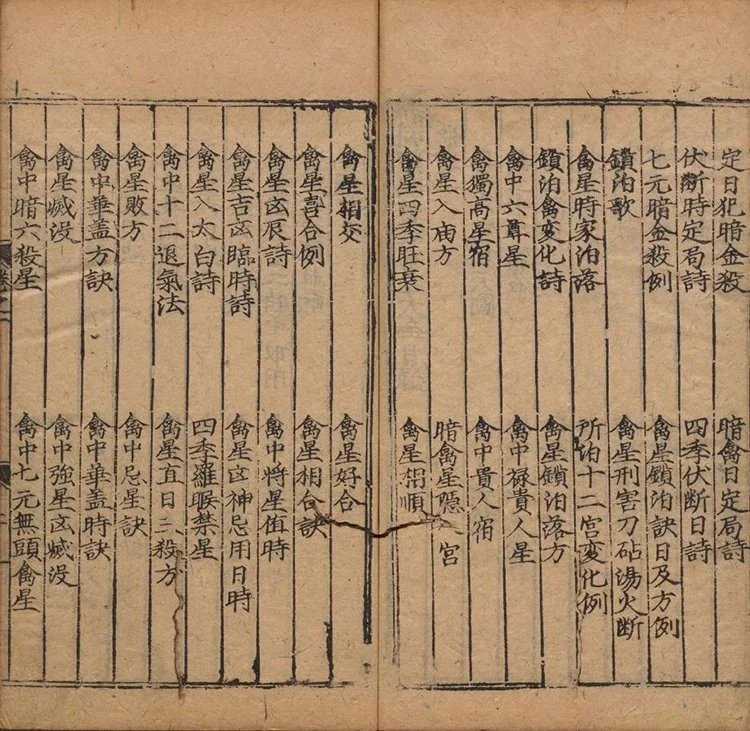 定日犯暗金殺　暗禽日定局詩
伏断時定局詩　四季伏断日詩
七元暗金殺例　禽星鎖泊訣日及方例
鎖泊歌　禽星刑害刀砧湯火断
禽星時家泊落　所泊十二宮変化例
鎖泊禽変化詩　禽星鎖泊落方
禽中六尊星　禽中禄貴人星
禽獨高星宿　禽中貴人宿
禽星入庙方　暗禽星隱宮
禽星四季旺衰　禽星相順
禽星相交　禽星好合
禽星喜合例　禽星相合訣
禽星凶辰詩　禽中将星值時
禽星吉凶臨時詩　禽星凶神忌用日時
禽星入太白詩　四季羅睺禁星
禽中十二退氣法　禽星直日三殺方
禽星敗方　禽中忌星訣
禽中華盖方訣　禽中華盖時訣
禽星滅没　禽中強星凶滅没
禽中暗六殺星　禽中七元無頭禽星